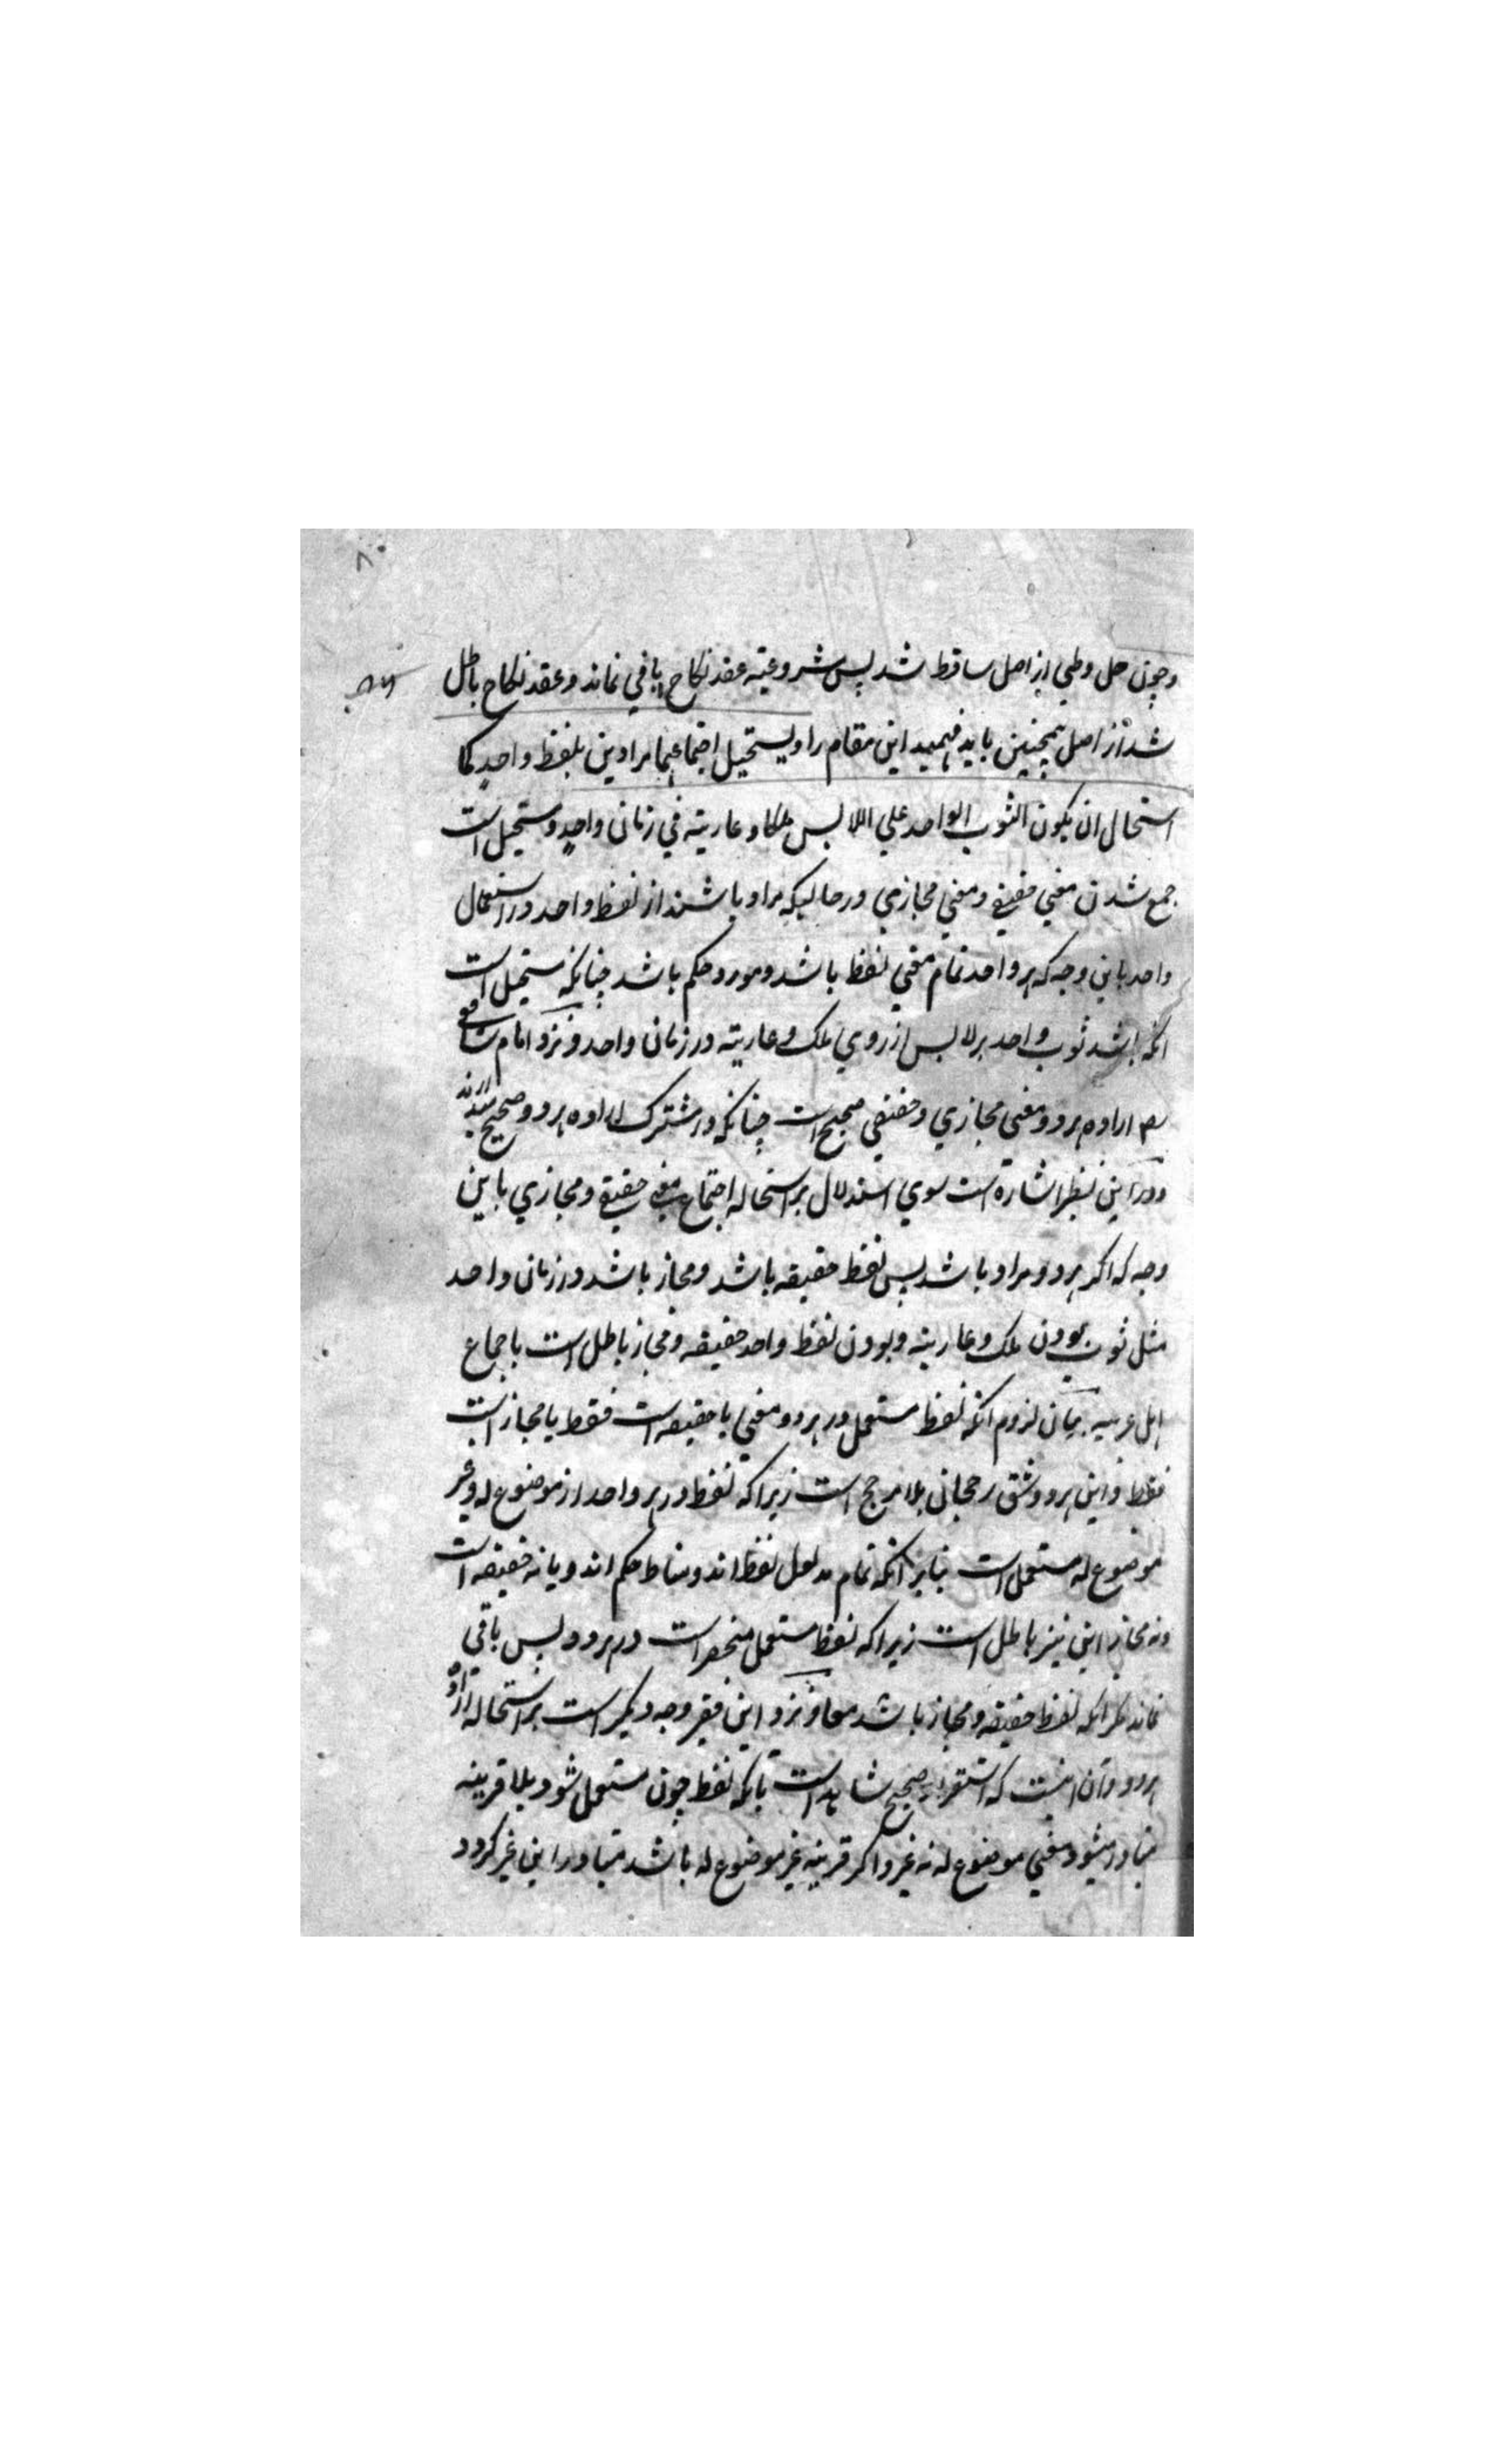 ۸۰
وچون حل وطي از اصل ساقط شد پس مشروعيته عقد نكاح باقي نماند و عقد نكاح باطل
شد از اصل همچنين بايد فهميد اين مقام را ويستحيل اجتماعهما مرادين بلفظ واحد كما
استحال ان يكون الثوب الواحد علي اللابس ملكا و عارية في زمان واحد ومستحيل است
جمع شدن معني حقيقي ومعني مجازي در حاليكه مراد باشند از لفظ واحد در استعمال
واحد باين وجه كه هر واحد تمام معني لفظ باشد ومورد حكم باشد چنانكه مستحيل است
انكه باشد ثوب واحد بر لابس از روي ملك وعارية در زمان واحد ونزد امام شافعي
اراده هر دو معني مجازي وحقيقي صحيح است چنانكه در مشترك اراده هر دو صحيح
ودر اين نظير اشاره است سوي استدلال بر استحاله اجتماع معني حقيقي ومجازي باين
وجه كه اكر هر دو مراد باشد پس لفظ حقيقه باشد ومجاز باشد در زمان واحد
مثل ثوب بودن ملك وعارية وبودن لفظ واحد حقيقه ومجاز باطل است باجماع
اهل عربيه بيان لزوم انكه لفظ مستعمل در هر دو معني يا حقيقه است فقط يا مجاز است
فقط واين هر دو شق رجحان بلا مرجح است زيرا كه لفظ در هر واحد از موضوع له وغير
موضوع له مستعمل است بنابر انكه تمام مدلول لفظ اند ومناط حكم اند ويا نه حقيقه است
ونه مجاز اين نيز باطل است زيرا كه لفظ مستعمل منحصر است در هر دو پس باقي
نماند مكر انكه لفظ حقيقه ومجاز باشد معا ونزد اين فقير وجه ديكر است بر استحاله اراده
هر دو وآن اينست كه استقراء صحيح شاهد است بانكه لفظ چون مستعمل شود بلا قرينه
متبادر ميشود معني موضوع له نه غير واكر قرينه غير موضوع له باشد متبادر اين غير كردد